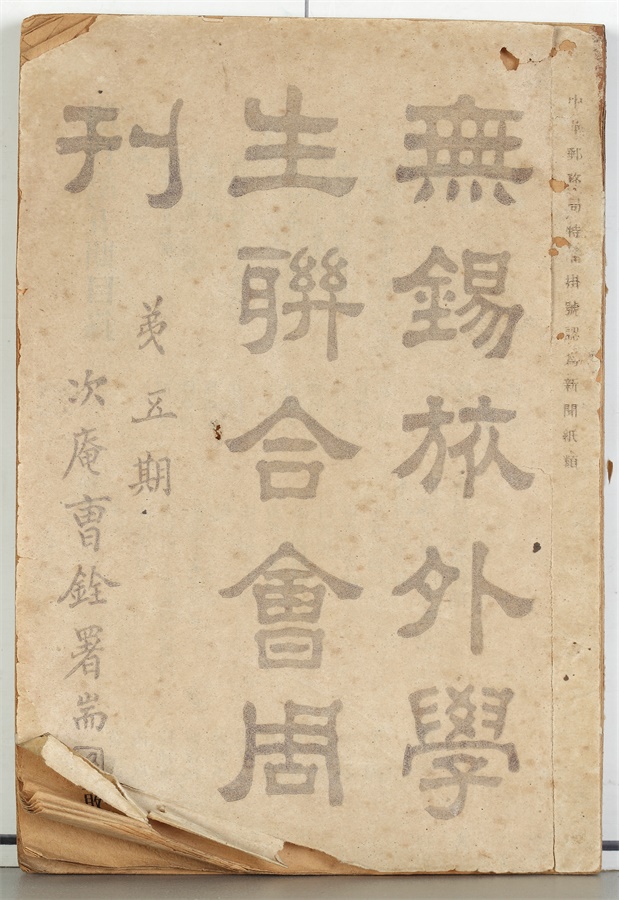 中華郵務局特准掛號認爲新聞紙類
無錫旅外學
生聯合會周
刊
弟五期
次庵曹銓署耑